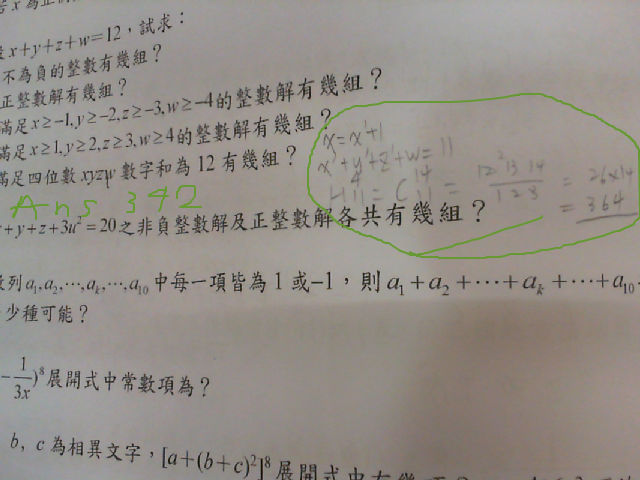 x 為正
x+y+z+w=12，試求：
不為負的整數有幾組？
正整數解有幾組？
滿足x≥-1,y≥-2,z≥-3,w≥-4的整數解有幾組？
滿足x≥1,y≥2,z≥3,w≥4的整數解有幾組？
滿足四位數 xyzw 數字和為 12 有幾組？
Ans 342
x=x'+1
x'+y'+z'+w=11
H⁴₁₁ = C¹⁴₁₁ = 12 13 14 / 1 2 3 = 26×14
= 364
+y+z+3u²=20之非負整數解及正整數解各共有幾組？
列 a₁,a₂,⋯,aₖ,⋯,a₁₀ 中每一項皆為 1 或-1，則 a₁+a₂+⋯+aₖ+⋯+a₁₀
少種可能？
-1/3x)⁸展開式中常數項為？
b, c 為相異文字，[a+(b+c)²]⁸展開式中有